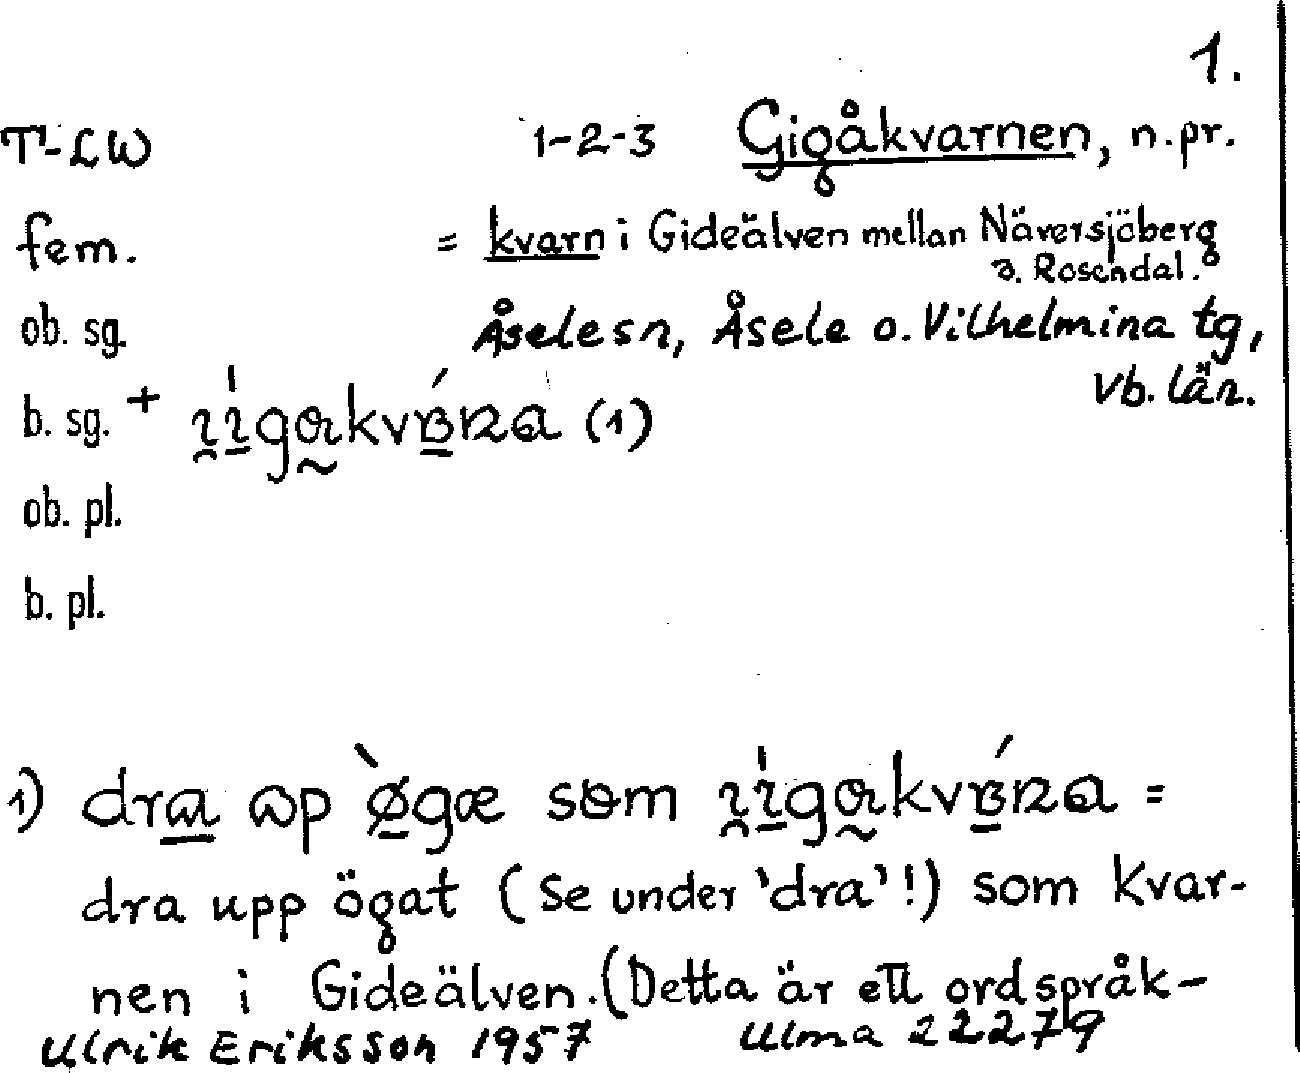 1.
T-LW 1-2-3 Gigåkvarnen, n.pr.
fem. = kvarn i Gideälven mellan Näversjöberg
o. Rosendal.
ob. sg. Åsele sn, Åsele o. Vilhelmina tg,
Vb. län.
b. sg. + (1)
ob. pl.
b. pl.
1) dra som =
dra upp ögat (se under 'dra'!) som kvar-
nen i Gideälven. (Detta är ett ordspråk-
Ulrik Eriksson 1957 Ulma 22279